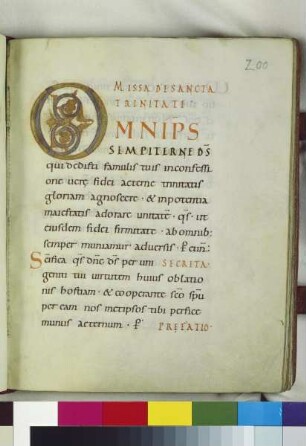 200
MISSA DE SANCTA
TRINITATE
OMNIPS
SEMPITERNE DS̄
qui dedisti famulis tuis inconfessi
one uere fidei aeterne trinitatis
gloriam agnoscere · & inpotentia
maiestatis adorare unitatē · q̄s · ut
eiusdem fidei firmitate · ab omnib;
semper muniamur aduersis · P̄ eun̄
Scifica q̄s dn̄e ds̄ per uni SECRETA
geniti tui uirtutem huius oblatio
nis hostiam · & cooperante sc̄o sp̄u
per eam nos metipsos tibi perfice
munus aeternum · P̄ PREFATIO